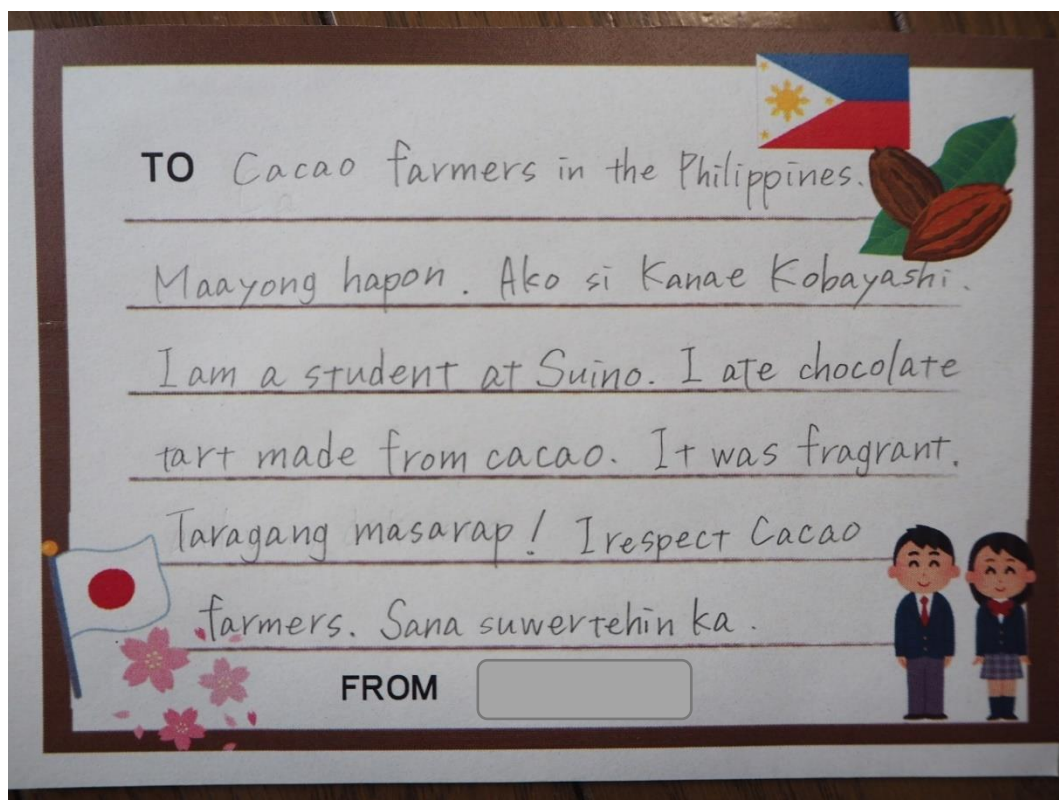 TO Cacao farmers in the Philippines.
Maayong hapon. Ako si Kanae Kobayashi.
I am a student at Suino. I ate chocolate
tart made from cacao. It was fragrant.
Taragang masarap! I respect Cacao
farmers. Sana suwertehin ka.
FROM